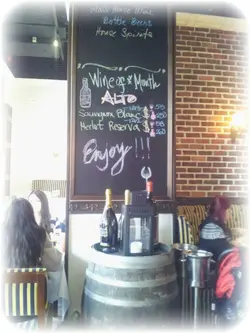 House Wine
Bottle Beers
House Specials
Wine of Month
ALTO
Sauvignon Blanc
Merlot Reserva
Enjoy!!!